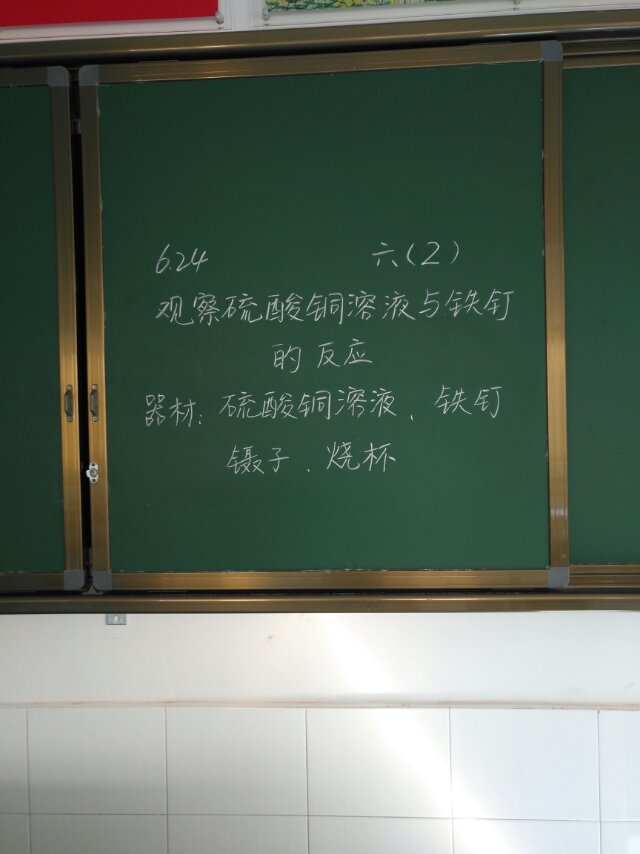 6.24 六(2)
观察硫酸铜溶液与铁钉
的反应
器材：硫酸铜溶液、铁钉
镊子、烧杯